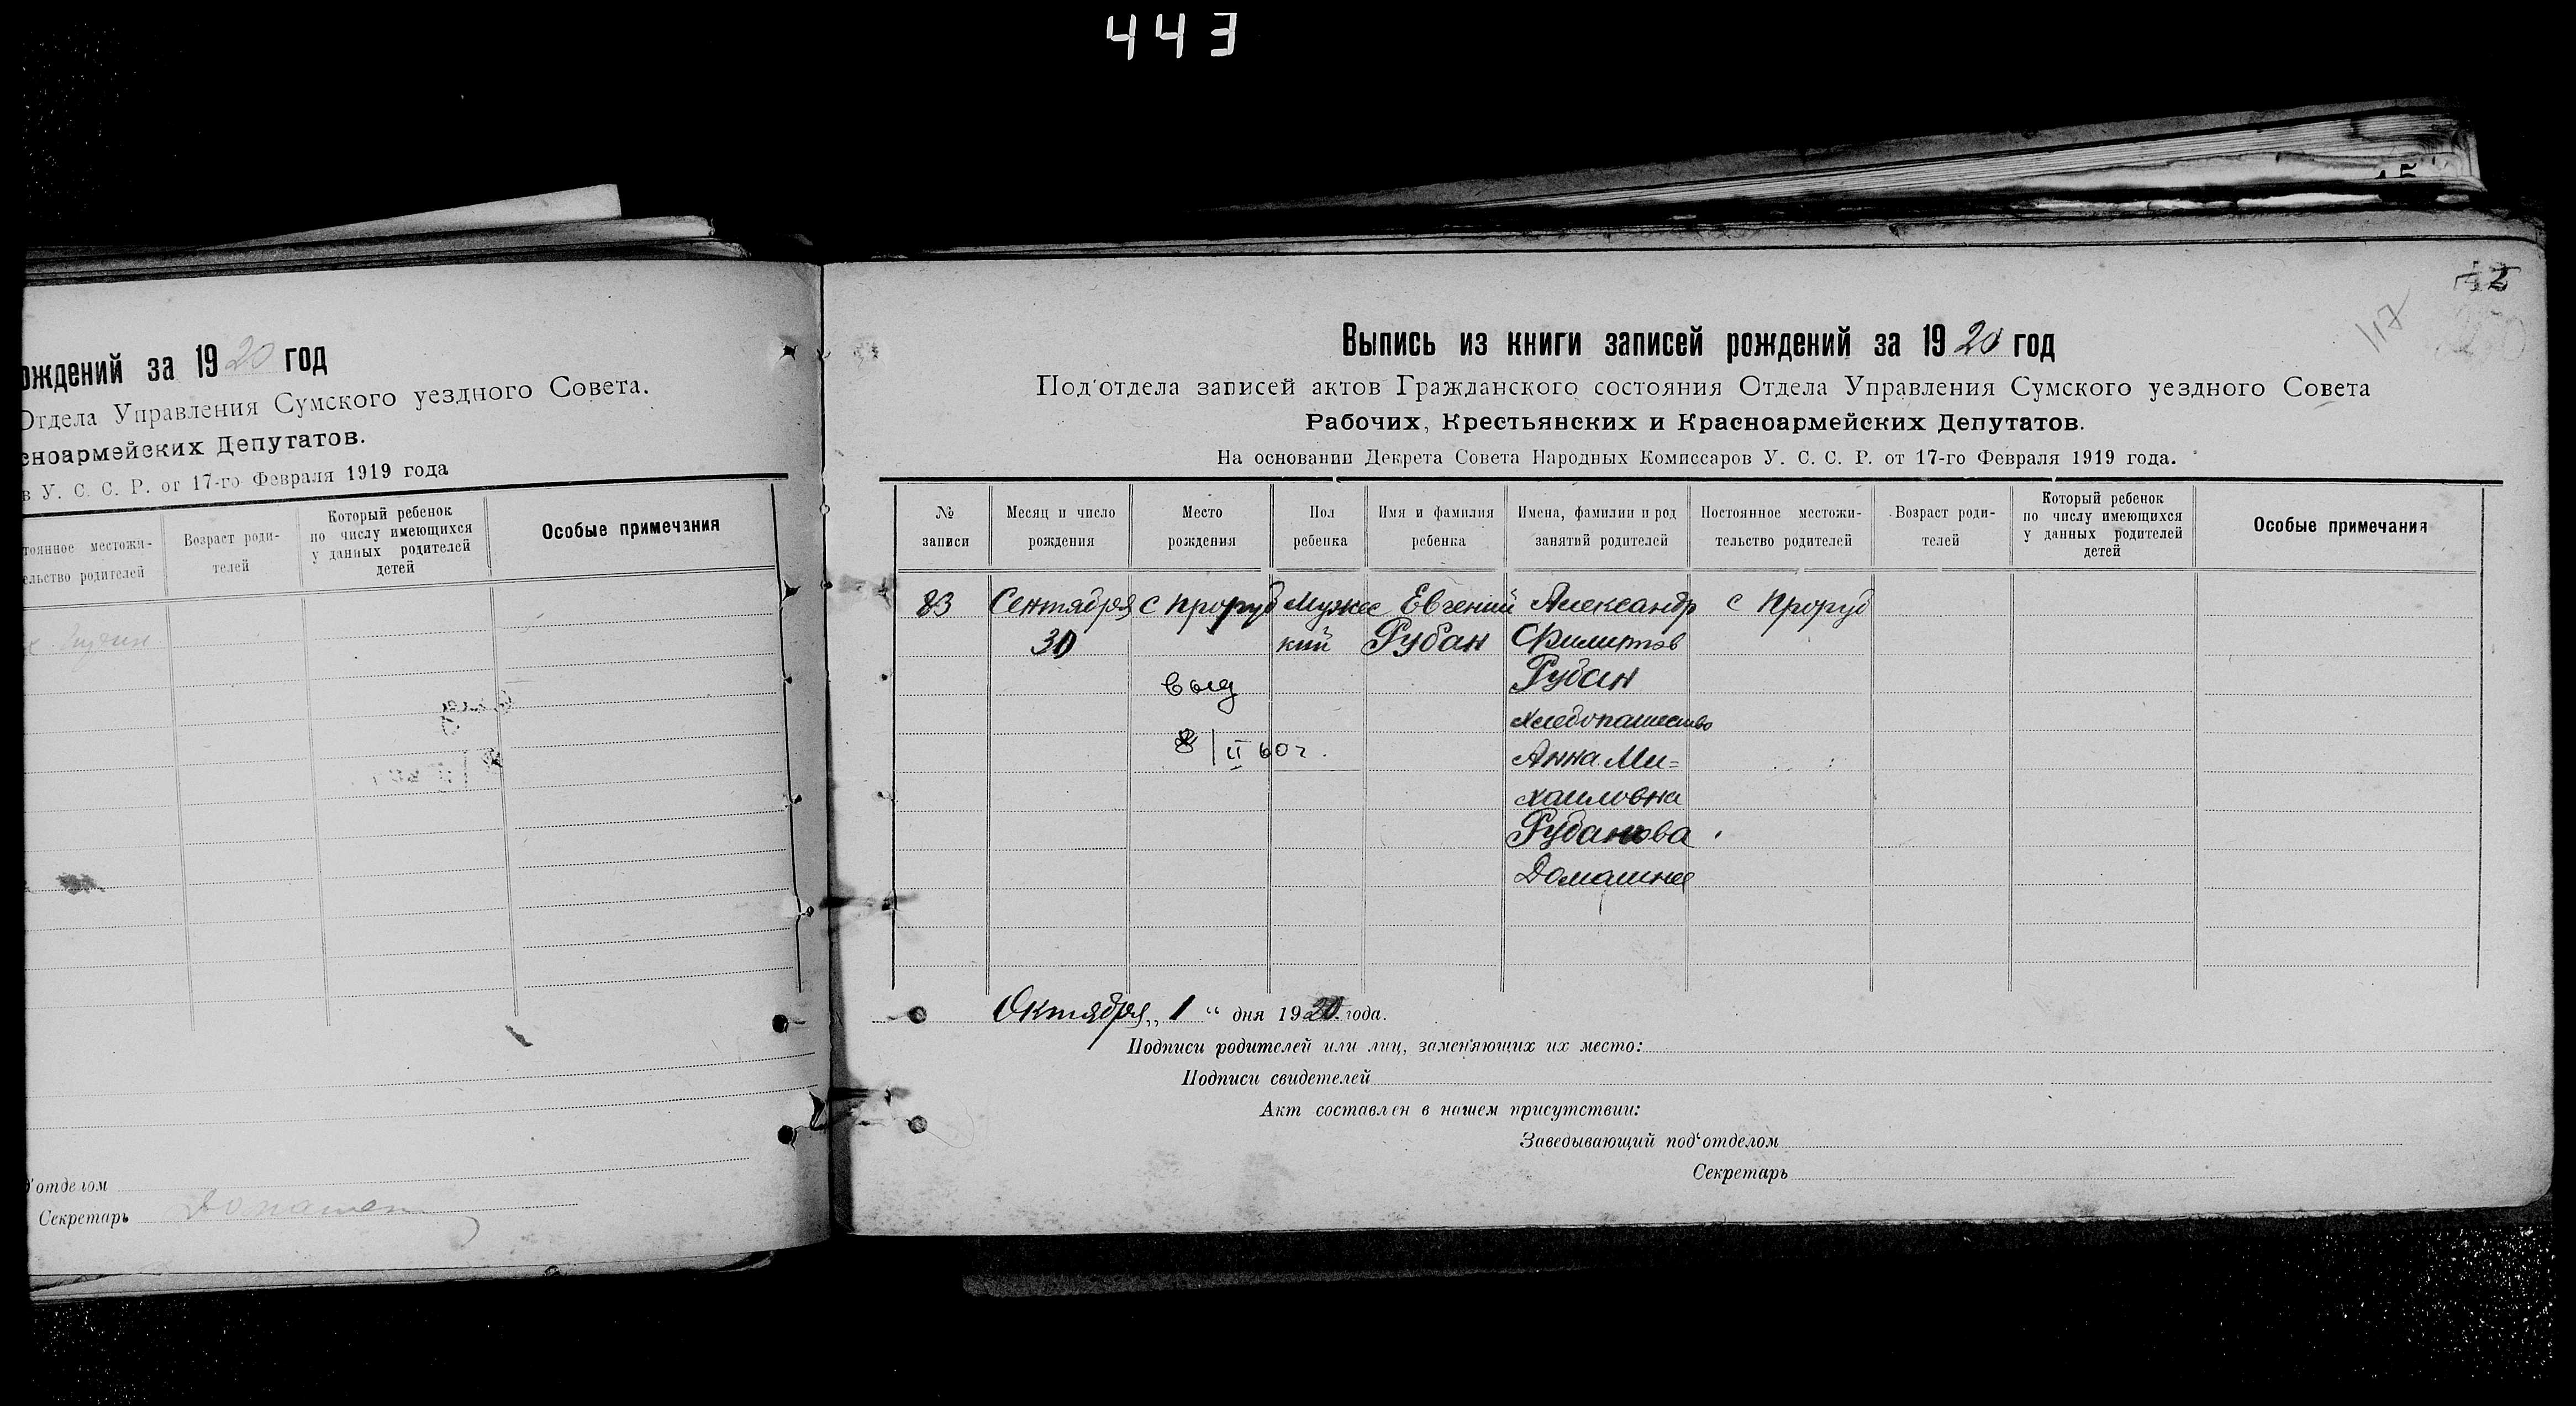 443
ождений за 1920 год
Отдела Управления Сумского уездного Совета.
сноармейских Депутатов.
в У. С. С. Р. от 17-го Февраля 1919 года
тоянное местожи-
ельство родителей
Возраст роди-
телей
Который ребенок
по числу имеющихся
у данных родителей
детей
Особые примечания
д'отделом
Секретарь
42
117
Выпись из книги записей рождений за 1920 год
Под'отдела записей актов Гражданского состояния Отдела Управления Сумского уездного Совета
Рабочих, Крестьянских и Красноармейских Депутатов.
На основании Декрета Совета Народных Комиссаров У. С. С. Р. от 17-го Февраля 1919 года.
№
записи
Месяц и число
рождения
Место
рождения
Пол
ребенка
Имя и фамилия
ребенка
Имена, фамилии и род
занятий родителей
Постоянное местожи-
тельство родителей
Возраст роди-
телей
Который ребенок
по числу имеющихся
у данных родителей
детей
Особые примечания
83 Сентября с Проруб Мужес Евгений Александр с Проруб
30 кий Рубан Филиппов
выд Рубан
хлебопашество
8/II 60 г. Анна Ми=
хаиловна
Рубанова
Домашнее
Октября „1“ дня 1920 года.
Подписи родителей или лиц, заменяющих их место:
Подписи свидетелей
Акт составлен в нашем присутствии:
Заведывающий под'отделом
Секретарь